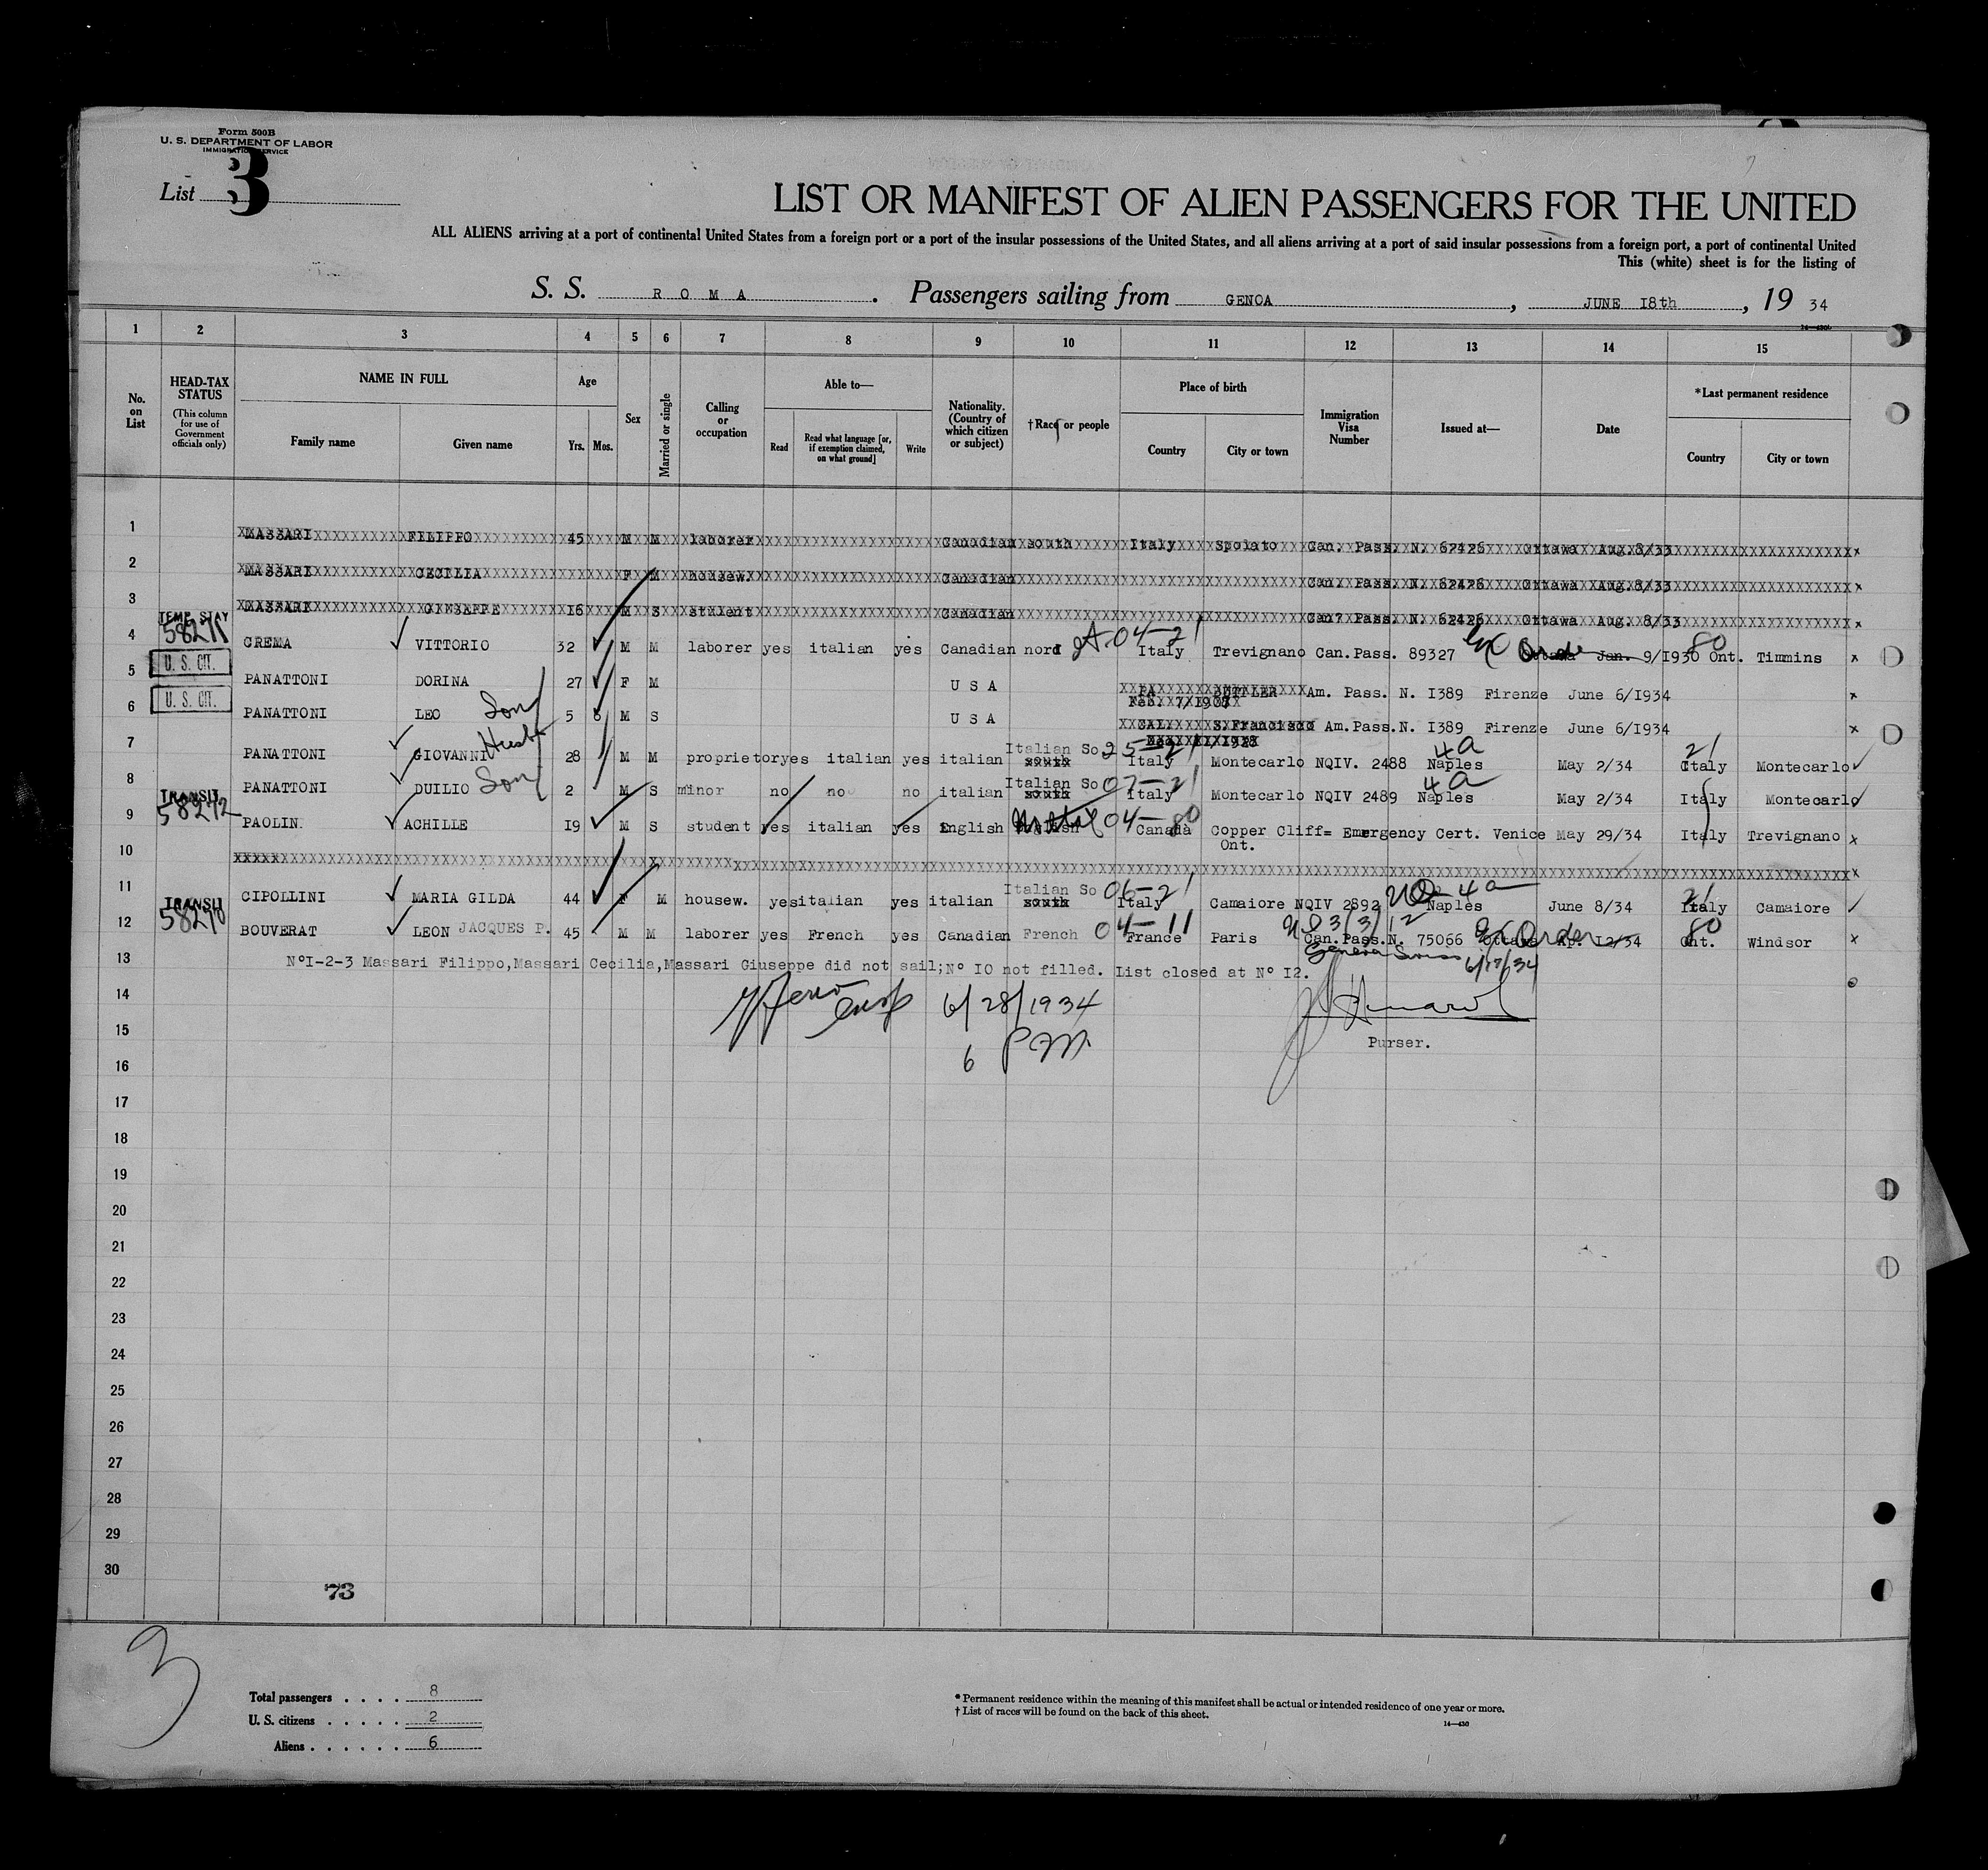 Form 500B
U. S. DEPARTMENT OF LABOR
IMMIGRATION SERVICE
List 3
LIST OR MANIFEST OF ALIEN PASSENGERS FOR THE UNITED
ALL ALIENS arriving at a port of continental United States from a foreign port or a port of the insular possessions of the United States, and all aliens arriving at a port of said insular possessions from a foreign port, a port of continental United
This (white) sheet is for the listing of
S. S. ROMA. Passengers sailing from GENOA, JUNE I8th, 19 34
1 2 3 4 5 6 7 8 9 10 11 12 13 14 15
No. on List
HEAD-TAX STATUS (This column for use of Government officials only)
NAME IN FULL Family name Given name
Age Yrs. Mos.
Sex
Married or single
Calling or occupation
Able to— Read Read what language [or, if exemption claimed, on what ground] Write
Nationality. (Country of which citizen or subject)
†Race or people
Place of birth Country City or town
Immigration Visa Number
Issued at—
Date
*Last permanent residence Country City or town
1 MASSARI FILIPPO 45 M M laborer Canadian south Italy Spoleto Can. Pass. N. 62426 Ottawa Aug.8/33
2 MASSARI CECILIA F M housew. Canadian Can. Pass. N. 62426 Ottawa Aug.8/33
3 MASSARI GIUSEPPE I6 M S student Canadian Can? Pass. N. 62426 Ottawa Aug. 8/33
TEMP. STAY
4 58271 CREMA VITTORIO 32 M M laborer yes italian yes Canadian nord 04-21 Italy Trevignano Can.Pass. 89327 Ex Order Ottawa Jan. 9/I930 80 Ont. Timmins x
5 U. S. CIT. PANATTONI DORINA 27 F M U S A PA BUTLER Am. Pass. N. I389 Firenze June 6/I934 x
Feb. 7/1907
6 U. S. CIT. PANATTONI LEO Son 5 6 M S U S A CAL. S.Francisco Am.Pass.N. I389 Firenze June 6/I934 x
7 PANATTONI GIOVANNI Husb 28 M M proprietor yes italian yes italian Italian So south 25-21 Italy Montecarlo NQIV. 2488 4a Naples May 2/34 21 Italy Montecarlo
8 PANATTONI DUILIO Son 2 M S minor no no no italian Italian So south 07-21 Italy Montecarlo NQIV 2489 4a Naples May 2/34 Italy Montecarlo
TRANSIT
9 58272 PAOLIN ACHILLE I9 M S student yes italian yes English 04-80 Canada Copper Cliff= Emergency Cert. Venice May 29/34 Italy Trevignano x
Ont.
10
11 CIPOLLINI MARIA GILDA 44 F M housew. yes italian yes italian Italian So south 06-21 Italy Camaiore NQIV 2892 4a Naples June 8/34 21 Italy Camaiore
TRANSIT
12 58270 BOUVERAT LEON JACQUES P. 45 M M laborer yes French yes Canadian French 04-11 France Paris Can.Pass.N. 75066 Ottawa Ex Order Ap. I2/34 80 Ont. Windsor x
13 N°I-2-3 Massari Filippo,Massari Cecilia,Massari Giuseppe did not sail;N° IO not filled. List closed at N° I2. 6/17/34
14 6/28/1934
15 6 PM.
Purser.
16
17
18
19
20
21
22
23
24
25
26
27
28
29
30
73
3
Total passengers . . . . 8
U. S. citizens . . . . . 2
Aliens . . . . . . 6
* Permanent residence within the meaning of this manifest shall be actual or intended residence of one year or more.
† List of races will be found on the back of this sheet.
14—430